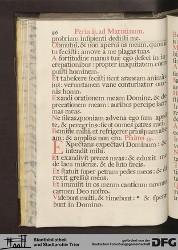 96 Feria ij. ad Matutinum.
probrium insipienti dedisti me.
Obmutui, & non aperui os meum, quoniam
tu fecisti: amove a me plagas tuas.
A fortitudine manus tuæ ego defeci in
crepationibus: propter iniquitatem corri
puisti hominem.
Et tabescere fecisti sicut araneam animam
ejus: verumtamen vane conturbatur omnis
homo.
Exaudi orationem meam Domine, & de
precationem meam: auribus percipe lacry
mas meas.
Ne sileas, quoniam advena ego sum apud
te, & peregrinus, sicut omnes patres mei.
Remitte mihi, ut refrigerer priusquam abe
am, & amplius non ero.
Expectans expectavi Dominum: &
intendit mihi.
Et exaudivit preces meas: & eduxit me
de lacu miseriæ, & de luto fæcis.
Et statuit super petram pedes meos: & di
rexit gressus meos.
Et immisit in os meum canticum novum:
carmen Deo nostro.
Videbunt multi, & timebunt: * & spera
bunt in Domino.
DFG